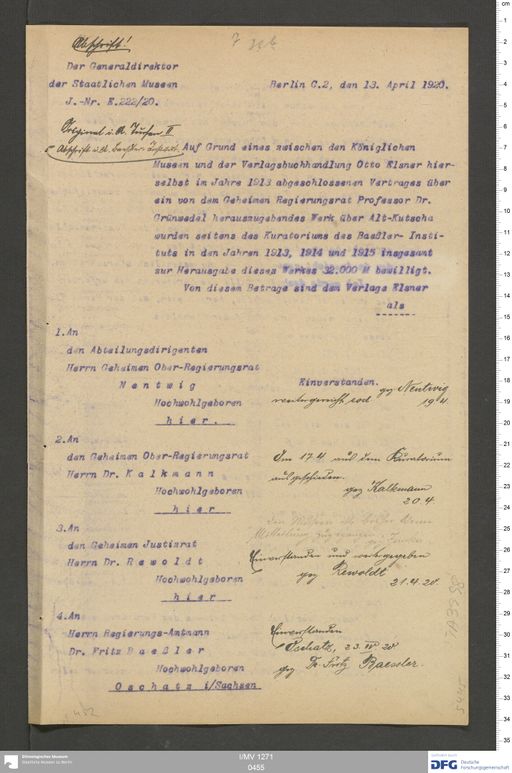 Abschrift!
Der Generaldirektor
der Staatlichen Museen
J.-Nr. E.222/20.
Berlin C.2, den 13. April 1920.
Original i. A.
Abschrift i. A. Baeßler
Auf Grund eines zwischen den Königlichen
Museen und der Verlagsbuchhandlung Otto Elsner hier-
selbst im Jahre 1913 abgeschlossenen Vertrages über
ein von dem Geheimen Regierungsrat Professor Dr.
Grünwedel herauszugebendes Werk über Alt-Kutscha
wurden seitens des Kuratoriums des Baeßler- Insti-
tuts in den Jahren 1913, 1914 und 1915 insgesamt
zur Herausgabe dieses Werkes 32.000 M bewilligt.
Von diesem Betrage sind dem Verlage Elsner
als
1.An
den Abteilungsdirigenten
Herrn Geheimen Ober-Regierungsrat
Nentwig
Hochwohlgeboren
hier.
Einverstanden.
gez Nentwig
19.4.
2.An
den Geheimen Ober-Regierungsrat
Herrn Dr. Kalkmann
Hochwohlgeboren
hier
Am 17.4 aus dem Kuratorium
ausgeschieden.
gez Kalkmann
20.4
3.An
den Geheimen Justizrat
Herrn Dr. Rewoldt
Hochwohlgeboren
hier
Einverstanden und weitergegeben
gez Rewoldt
21.4.20.
4.An
Herrn Regierungs-Amtmann
Dr. Fritz Baeßler
Hochwohlgeboren
Oschatz i/Sachsen
Einverstanden
Oschatz, 23.IV.20
gez Dr. Fritz Baessler.
Ethnologisches Museum
Staatliche Museen zu Berlin
I/MV 1271
0455
DFG Deutsche
Forschungsgemeinschaft